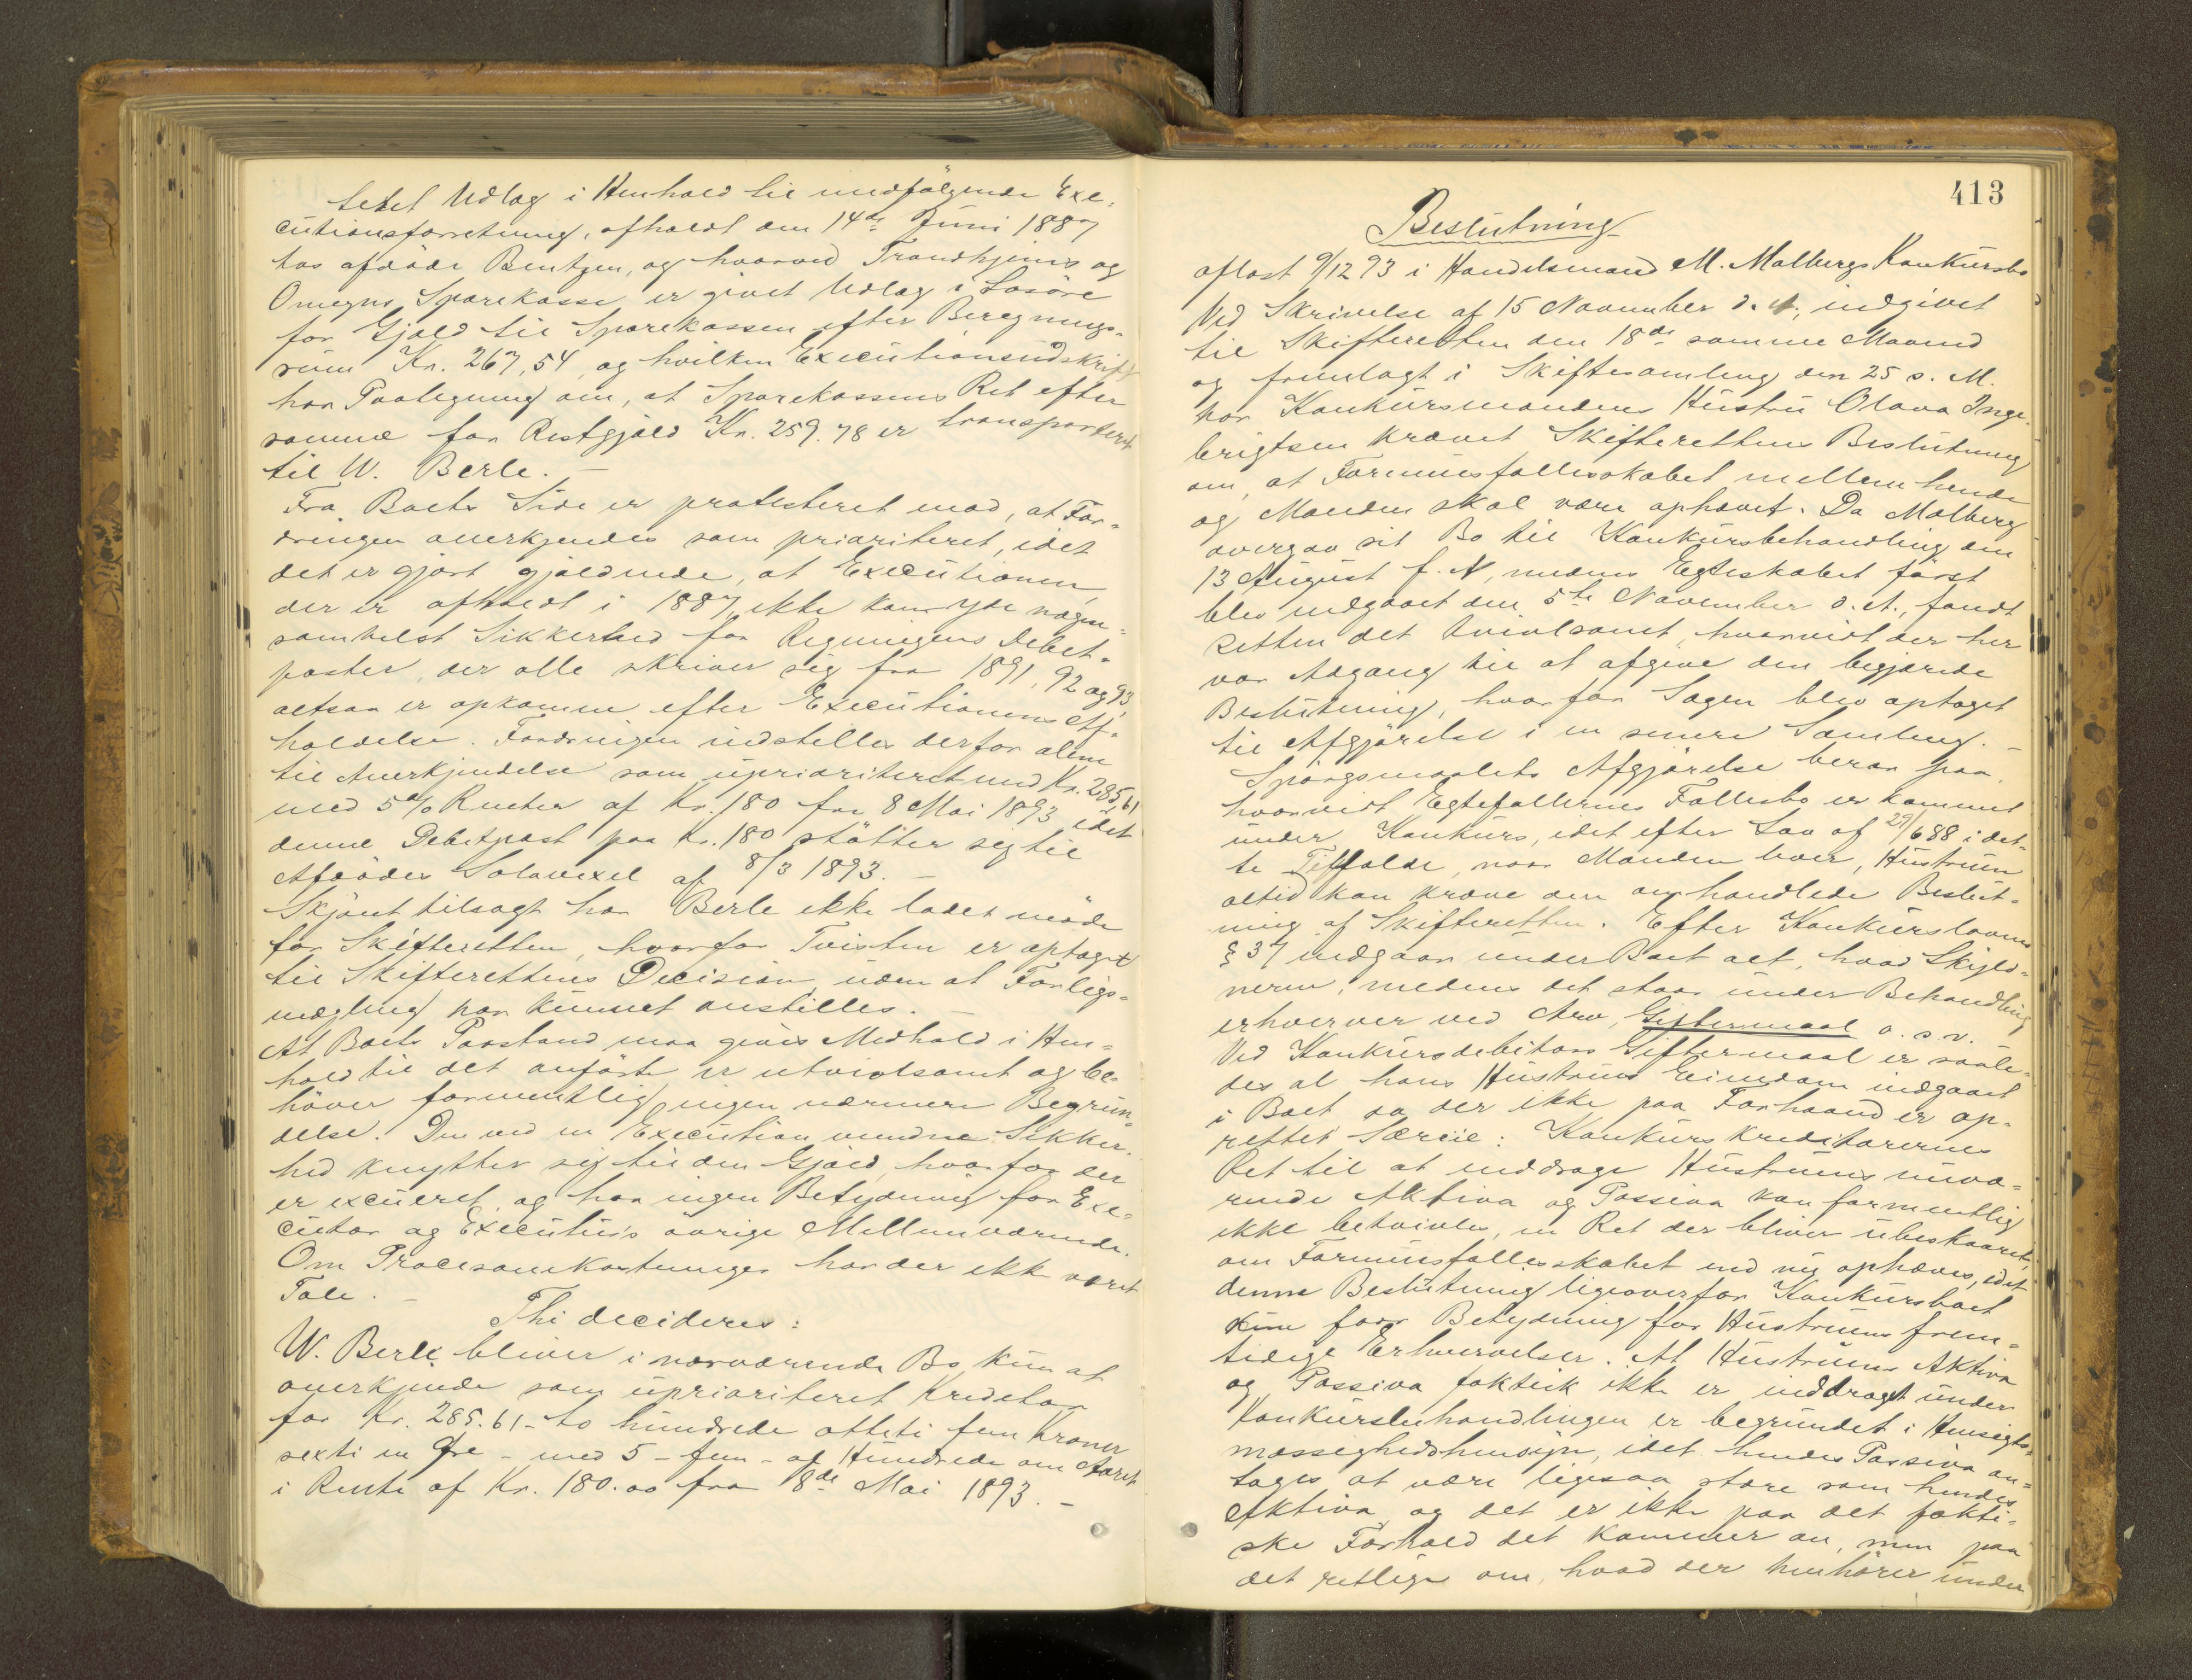 tetet Udlæg i Henhold til medfølgende Exe-
cutionsforretning, afholdt den 14de Juni 1887
hos afdøde Bentzen, og hvorved Trondhjems og
Omegns Sparekasse er givet Udlæg i Løsøre
for Gjæld til Sparekassen efter Beregnings-
rum Kr. 267,54, og hvilken Executionsudskrift
har Paategning om, at Sparekassens Ret efter
samme for Restgjæld Kr. 259.78 er transporteret
til W. Berle. —
Fra Boets Side er protesteret mod, at For-
dringen anerkjendes som prioriteret, idet
det er gjort gjældende, at Executionen,
der er afholdt i 1887, ikke kan yde nogen-
somhelst Sikkerhed for Regningens Debet-
poster, der alle skriver sig fra 1891, 92 og 93,
altsaa er opkomne efter Executionens Af-
holdelse. Fordringen indstilles derfor alene
til Anerkjendelse som uprioriteret med Kr. 285,61
med 5% Renter af Kr. 180 fra 8 Mai 1893, idet
denne Debetpost paa Kr. 180 støtter sig til
Afdødes Solavexel af 8/3 1893. —
Skjønt tilsagt har Berle ikke ladet møde
for Skifteretten, hvorfor Tvisten er optaget
til Skifterettens Decision, uden at Forligs-
mægling har kunnet anstilles. —
At Boets Paastand maa gives Medhold i Hen-
hold til det anførte er utvivlsomt og be-
høver formentlig ingen nærmere Begrun-
delse. Den ved en Execution vundne Sikker-
hed knytter sig til den Gjæld, hvorfor der
er exequeret, og har ingen Betydning for Exe-
cutor og Executus's øvrige Mellemværende.
Om Procesomkostninger har der ikke været
Tale. —
Thi decideres:
W. Berle bliver i nærværende Bo kun at
anerkjende som uprioriteret Kreditor
for Kr. 285.61 - to hundrede otteti fem Kroner
sexti en Øre - med 5 - fem - af Hundrede om Aaret
i Rente af Kr. 180.00 fra 8de Mai 1893. —
413
Beslutning
aflæst 9/12 93 i Handelsmand M. Malbergs Konkursbo
Ved Skrivelse af 15 November d. A., indgivet
til Skifteretten den 18de samme Maaned
og fremlagt i Skiftesamling den 25 s. M.
har Konkursmandens Hustru Olava Inge-
brigtsen krævet Skifterettens Beslutning
om, at Formuesfællesskabet mellem hende
og Manden skal være ophævet. Da Malberg
overgav sit Bo til Konkursbehandling den
13 August f. A, medens Egteskabet først
blev indgaaet den 5te November d. A., fandt
Retten det tvivlsomt, hvorvidt der her
var Adgang til at afgive den begjærede
Beslutning, hvorfor Sagen blev optaget
til Afgjørelse i en senere Samling. —
Spørgsmaalets Afgjørelse beror paa,
hvorvidt Egtefællernes Fællesbo er kommet
under Konkurs, idet efter Lov af 29/6 88 i det-
te Tilfælde, naar Manden lever, Hustruen
altid kan kræve den omhandlede Beslut-
ning af Skifteretten. Efter Konkurslovens
§ 37 indgaar under Boet alt, hvad Skyld-
neren, medens det staar under Behandling
erhverver ved Arv, Giftermaal o. s. v.
Ved Konkursdebitors Giftermaal er saale-
des al hans Hustrues Eiendom indgaaet
i Boet da der ikke paa Forhaand er op-
rettet Særeie: Konkurskreditorernes
Ret til at inddrage Hustruens nuvæ-
rende Aktiva og Passiva kan formentlig
ikke betvivles, en Ret der bliver ubeskaaret,
om Formuesfællesskabet end nu ophæves, idet
denne Beslutning ligeoverfor Konkursboet
kun faar Betydning for Hustruens frem-
tidige Erhvervelser. At Hustruens Aktiva
og Passiva faktisk ikke er inddraget under
Konkursbehandlingen er begrundet i Hensigts-
mæssighedshensyn, idet hendes Passiva an-
tages at være ligesaa store som hendes
Aktiva, og det er ikke paa det fakti-
ske Forhold det kommer an, men paa
det retlige om, hvad der henhører under